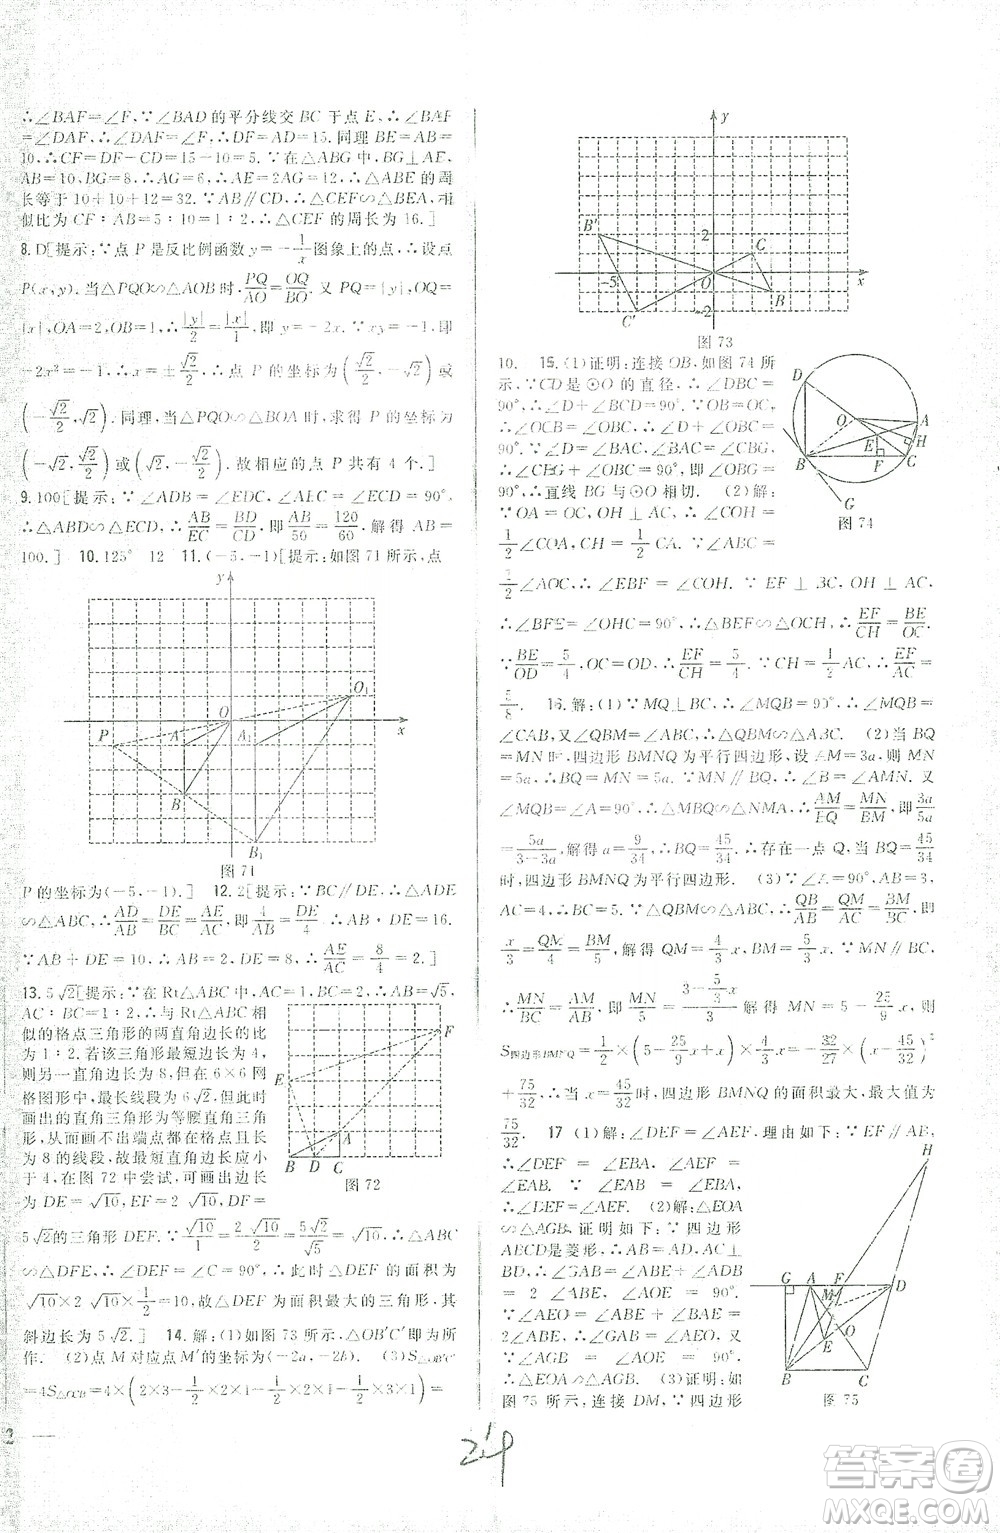 ∴∠BAF=∠F,∵∠BAD的平分线交BC于点E,∴∠BAF
=∠DAF,∴∠DAF=∠F,∴DF=AD=15.同理BE=AB=
10,∴CF=DF-DC=15-10=5.∵在△ABG中,BG⊥AE,
AB=10,BG=8,∴AG=6,∴AE=12,∴△ABE的周
长等于10+10+12=32.∵AB∥DF,∴△CEF∽△BEA,
似比为CF∶AB=5∶10=1∶2,∴△CEF的周长为16.]
8.D[提示:∵点P是反比例函数y=-1/x图象上的点,∴设点
P(x,y).当△PQO∽△AOB时,PQ/AO=OQ/BO.又PQ=|y|,OQ=
|x|,OA=2,OB=1,∴|y|/2=|x|/1,即y=-2x.∵xy=-1,即
-2x²=-1,∴x=±√2/2,∴点P的坐标为(√2/2,-√2)或
(-√2/2,√2).同理,当△PQO∽△BOA时,求得P的坐标为
(-√2,√2/2)或(√2,-√2/2).故相应的点P共有4个.]
9.100[提示:∵∠ADB=∠EDC,∠ABC=∠ECD=90°,
∴△ABD∽△ECD,∴AB/EC=BD/CD,即AB/50=120/60,解得AB=
100.] 10.125° 12 11.(-5,-1)[提示:如图71所示,点
y
O
O₁
P
A
A₁
x
B
B₁
图71
P的坐标为(-5,-1).] 12.2[提示:∵BC∥DE,∴△ADE
∽△ABC,∴AD/AB=DE/BC=AE/AC,即4/AB=DE/4,∴AB·DE=16.
∵AB+DE=10,∴AB=2,DE=8,∴AE/AC=8/4=2.]
13.5√2[提示:∵在Rt△ABC中,AC=1,BC=2,∴AB=√5,
AC∶BC=1∶2.∴与Rt△ABC相
似的格点三角形的两直角边长的比
为1∶2.若该三角形最短边长为4,
则另一直角边长为8,但在6×6网
格图形中,最长线段为6√2.但此时
画出的直角三角形为等腰直角三角
形,从而画不出端点都在格点且长
为8的线段,故最短直角边长应小
于4,在图72中尝试,可画出边长
为DE=√10,EF=2√10,DF=
F
E
A
B D C
图72
5√2的三角形DEF.∵√10/1=2√10/2=5√2/√5=√10,∴△ABC
∽△DFE,∴∠DEF=∠C=90°,∴此时△DEF的面积为
√10×2√10×1/2=10,故△DEF为面积最大的三角形,其
斜边长为5√2.] 14.解:(1)如图73所示,△OB′C′即为所
作. (2)点M对应点M′的坐标为(-2a,-2b). (3)S△OB′C′
=4S△OCB=4×(2×3-1/2×2×1-1/2×2×1-1/2×3×1)=
y
B′
2
C
-5
O
x
B
C′
-2
图73
10. 15.(1)证明:连接OB,如图74所
示,∵CD是⊙O的直径,∴∠DBC=
90°,∴∠D+∠BCD=90°.∵OB=OC,
∴∠OCB=∠OBC,∴∠D+∠OBC=
90°.∵∠D=∠BAC,∠BAC=∠CBG,
∴∠CBG+∠OBC=90°,即∠OBG=90°,
∴直线BG与⊙O相切. (2)解:
∵OA=OC,OH⊥AC,∴∠COH=
1/2∠COA,CH=1/2AC.∵∠ABC=
1/2∠AOC,∴∠EBF=∠COH.∵EF⊥BC,OH⊥AC,
∴∠BFE=∠OHC=90°,∴△BEF∽△OCH,∴EF/CH=BE/OC.
∵BE/OD=5/4,OC=OD,∴EF/CH=5/4.∵CH=1/2AC,∴EF/AC=
D
O
A
E
H
B
F
C
G
图74
5/8. 16.解:(1)∵MQ⊥BC,∴∠MQB=90°,∴∠MQB=
∠CAB.又∵∠QBM=∠ABC,∴△QBM∽△ABC. (2)当BQ
=MN时,四边形BMNQ为平行四边形,设AM=3a,则MN
=5a,∴BQ=MN=5a.∵MN∥BQ,∴∠B=∠AMN.又
∠MQB=∠A=90°,∴△MBQ∽△NMA,∴AM/BQ=MN/BM,即3a/5a
=5a/(3-3a).解得a=9/34,∴BQ=5a=45/34.∴存在一点Q,当BQ=45/34
时,四边形BMNQ为平行四边形. (3)∵∠A=90°,AB=3,
AC=4,∴BC=5.∵△QBM∽△ABC,∴QB/AB=QM/AC=BM/BC,即
x/3=QM/4=BM/5,解得QM=4/3x,BM=5/3x.∵MN∥BC,
∴MN/BC=AM/AB,即MN/5=(3-5/3x)/3,解得MN=5-25/9x.∴
S四边形BMNQ=1/2×(5-25/9x+x)×4/3x=-32/27(x-45/32)²+
75/32,∴当x=45/32时,四边形BMNQ的面积最大,最大值为
75/32. 17 (1)解:∠DEF=∠AEF.理由如下:∵EF∥AB,
∴∠DEF=∠EBA,∠AEF=
∠EAB.∵∠EAB=∠EBA,
∴∠DEF=∠AEF. (2)解:△EOA
∽△AGB.证明如下:∵四边形
ABCD是菱形,∴AB=AD,AC⊥
∵∠AEO=∠ABE+∠BAE=
∴∠GAB=∠AEO.又∠AGB=∠AOE=90°,
∴△EOA∽△AGB. (3)证明:如
图75所示,连接DM,∵四边形
H
G A F D
M
O
E
B C
图75
2
24
答案卷
MXQE.COM